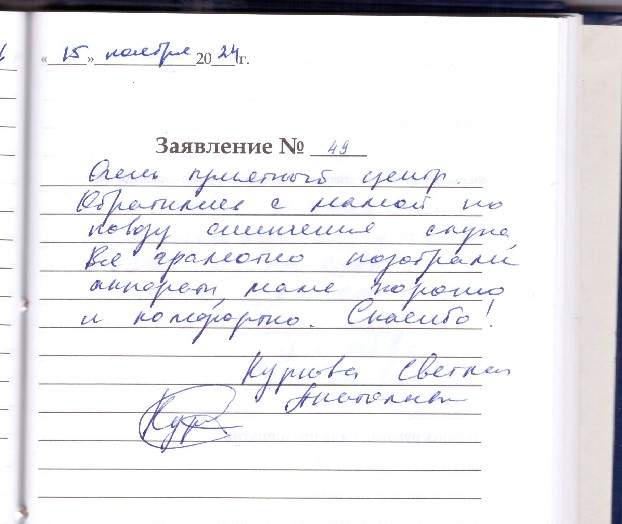 « 15 » ноября 2024 г.
Заявление № 49
Очень приятный центр.
Обратились с мамой по
поводу снижения слуха,
Все грамотно подобрали
аппараты, маме хорошо
и комфортно. Спасибо!
Светлана
Анатольевна